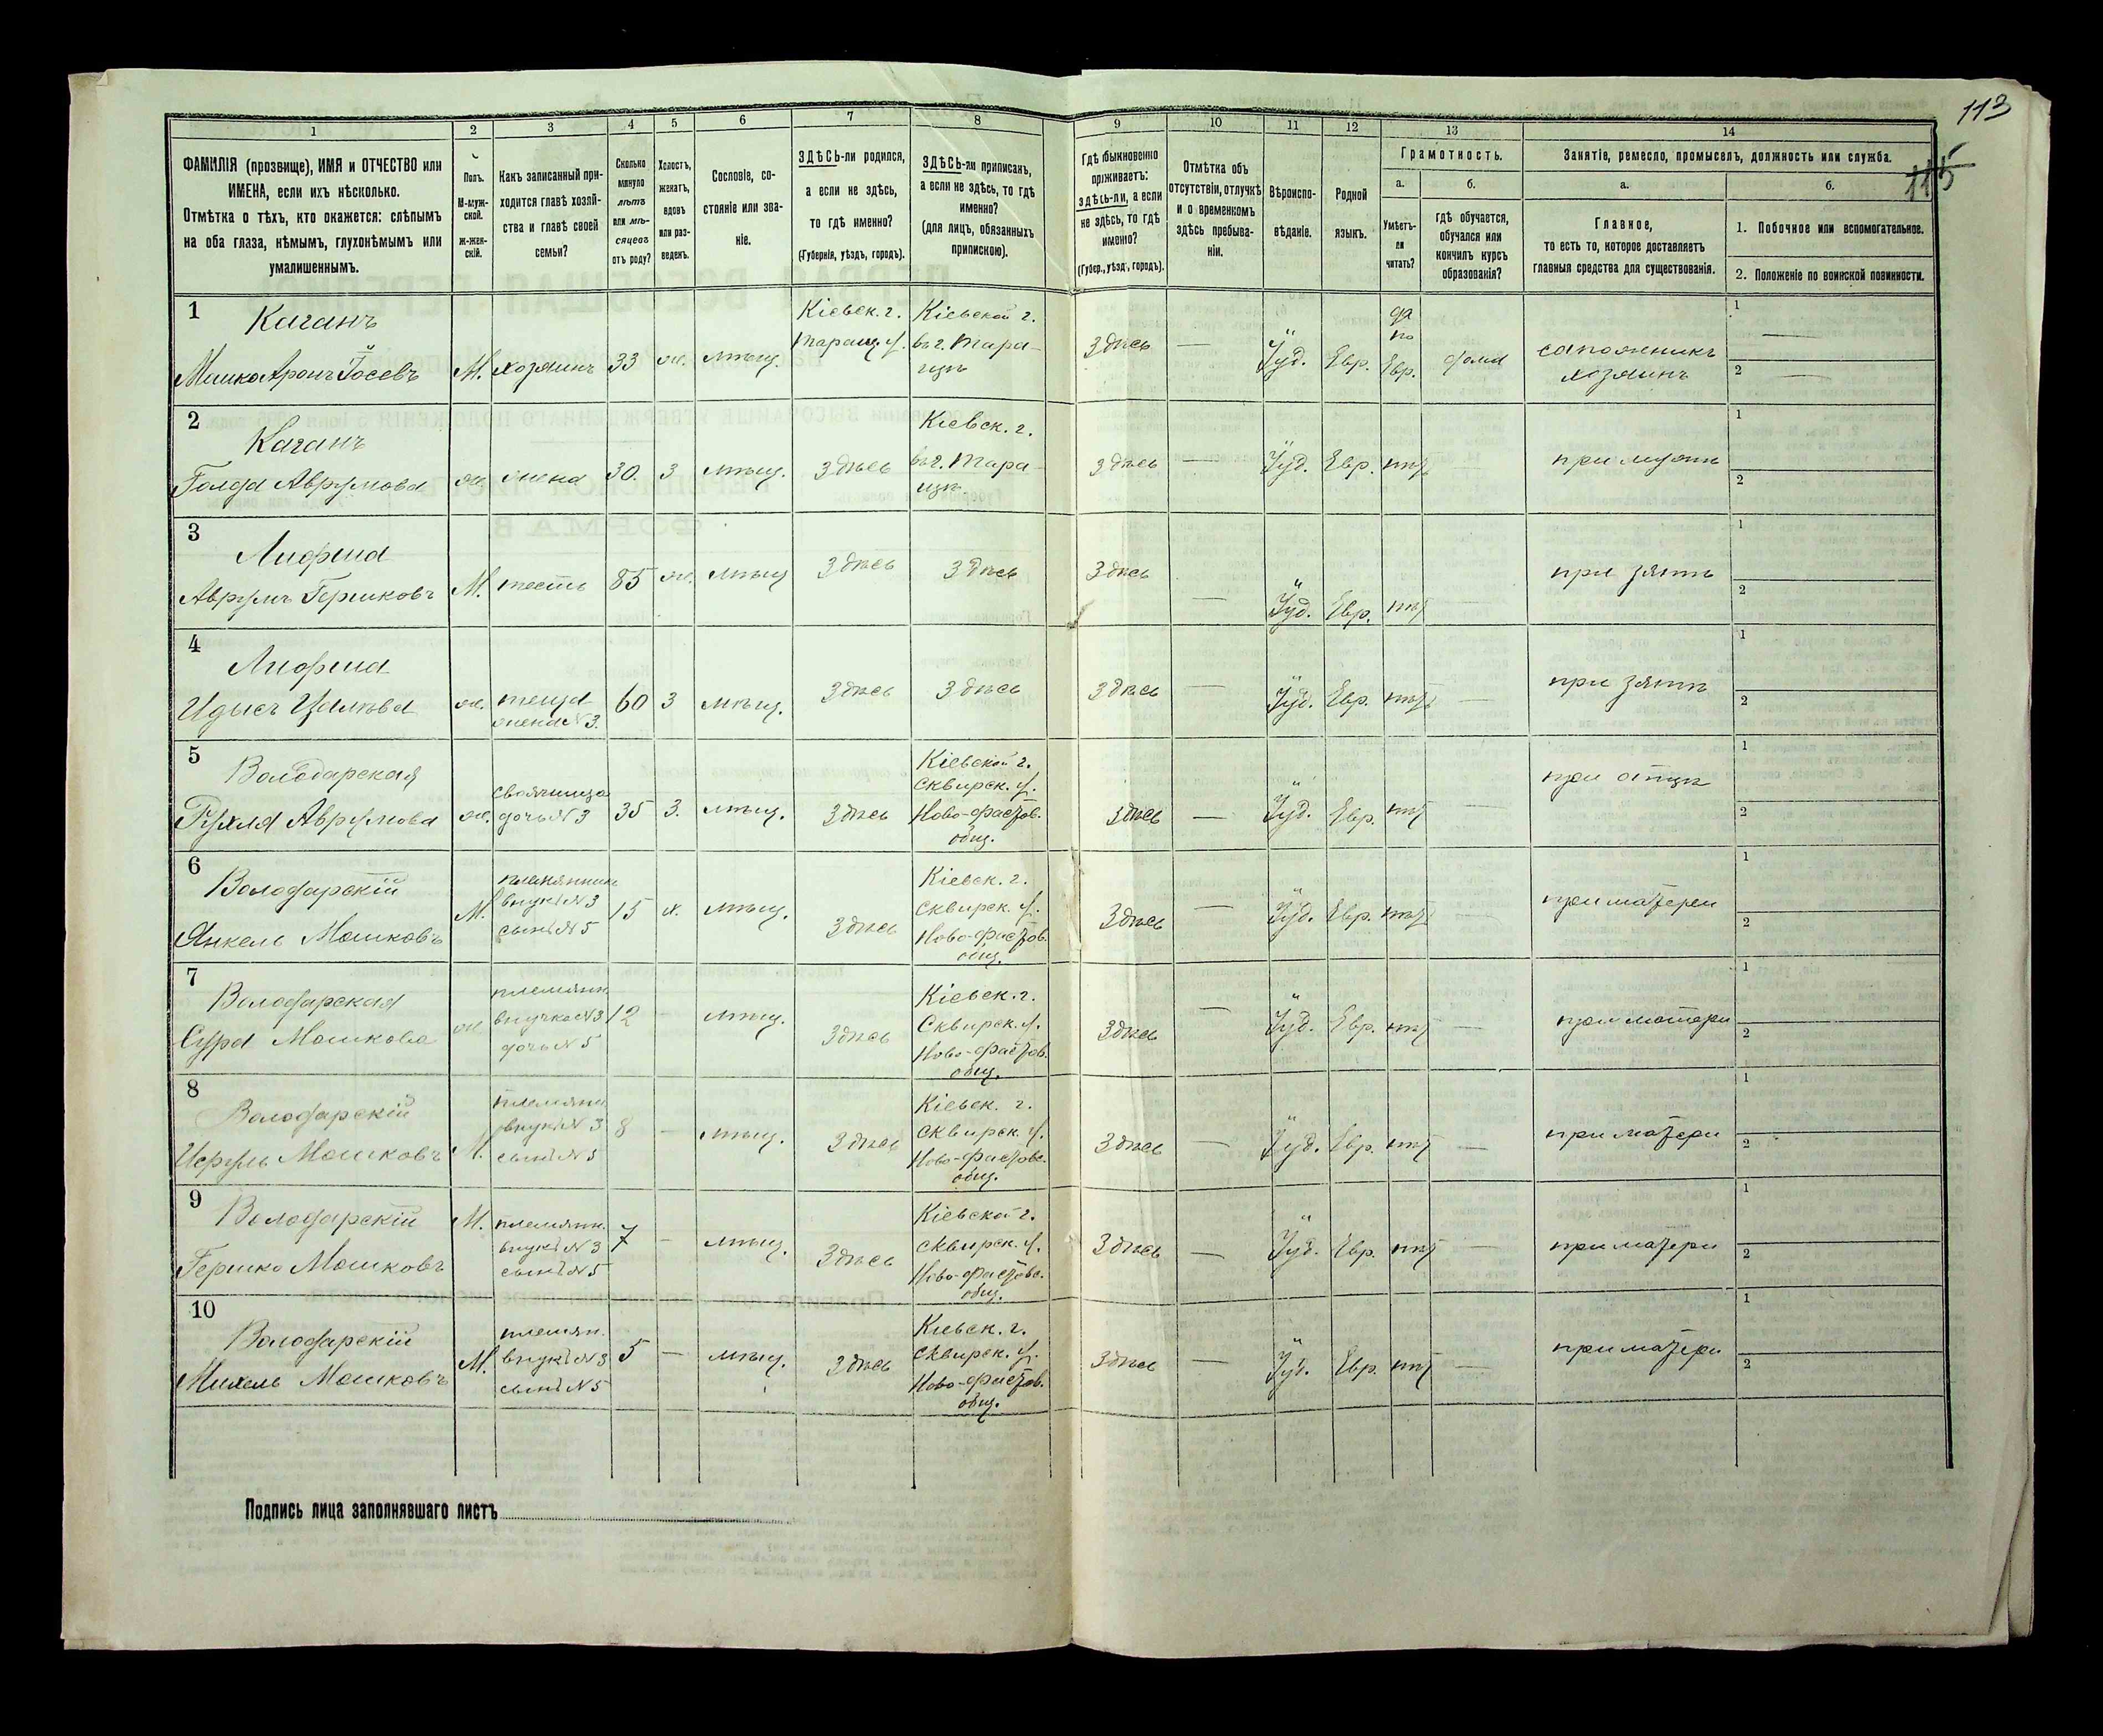 113
115
1
2
3
4
5
6
7
8
9
10
11
12
13
14
ФАМИЛІЯ (прозвище), ИМЯ и ОТЧЕСТВО или
ИМЕНА, если ихъ нѣсколько.
Отмѣтка о тѣхъ, кто окажется: слѣпымъ
на оба глаза, нѣмымъ, глухонѣмымъ или
умалишеннымъ.
Полъ.
М-муж-
ской.
ж-жен-
скій.
Какъ записанный при-
ходится главѣ хозяй-
ства и главѣ своей
семьи?
Сколько
минуло
лѣтъ
или мѣ-
сяцевъ
отъ роду?
Холостъ,
женатъ,
вдовъ
или раз-
веденъ.
Сословіе, со-
стояніе или зва-
ніе.
ЗДѢСЬ-ли родился,
а если не здѣсь,
то гдѣ именно?
(Губернія, уѣздъ, городъ).
ЗДѢСЬ-ли приписанъ,
а если не здѣсь, то гдѣ
именно?
(для лицъ, обязанныхъ
припискою).
Гдѣ обыкновенно
проживаетъ:
здѣсь-ли, а если
не здѣсь, то гдѣ
именно?
(Губер., уѣзд., городъ).
Отмѣтка объ
отсутствіи, отлучкѣ
и о временномъ
здѣсь пребыва-
ніи.
Вѣроиспо-
вѣданіе.
Родной
языкъ.
Грамотность.
а.
б.
Умѣетъ-
ли
читать?
гдѣ обучается,
обучался или
кончилъ курсъ
образованія?
Занятіе, ремесло, промыселъ, должность или служба.
а.
б.
Главное,
то есть то, которое доставляетъ
главныя средства для существованія.
1. Побочное или вспомогательное.
2. Положеніе по воинской повинности.
1
Каганъ
Мошко Аронъ Іосевъ
М.
хозяинъ
33
ж.
мѣщ.
Кіевск. г.
Таращ. у.
Кіевской г.
въ г. Тара-
щѣ
здѣсь
—
Іуд.
Евр.
да
по
Евр.
дома
сапожникъ
хозяинъ
1
—
2
—
2
Каганъ
Голда Аврумова
ж.
жена
30.
з
мѣщ.
здѣсь
Кіевск. г.
въ г. Тара-
щѣ
здѣсь
—
Іуд.
Евр.
нѣт
при мужѣ
1
2
3
Аврумъ Гершковъ
М.
тесть
85
ж.
мѣщ
здѣсь
здѣсь
здѣсь
—
Іуд.
Евр.
нѣт
—
при зятѣ
1
2
4
ж.
теща
жена №3.
60
з
мѣщ.
здѣсь
здѣсь
здѣсь
—
Іуд.
Евр.
нѣт
—
при зятѣ
1
2
5
Володарская
Рухля Аврумова
ж.
своячница
дочь №3
35
з.
мѣщ.
здѣсь
Кіевской г.
Сквирск. у.
Ново-фастов.
общ.
здѣсь
—
Іуд.
Евр.
нѣт
—
при отцѣ
1
2
6
Володарскій
Янкель Мошковъ
М.
племянник
внукъ №3
сынъ №5
15
х.
мѣщ.
здѣсь
Кіевск. г.
сквирск. у.
Ново-фастов.
общ.
здѣсь
—
Іуд.
Евр.
нѣт
—
при матери
1
2
7
Володарская
Сура Мошкова
ж.
племянн.
внучка №3
дочь №5
12
—
мѣщ.
здѣсь
Кіевск. г.
Сквирск. у.
Ново-фастов.
общ.
здѣсь
—
Іуд.
Евр.
нѣт
—
при матери
1
2
8
Володарскій
Исруль Мошковъ
М.
племянн.
внукъ №3
сынъ №5
8
—
мѣщ.
здѣсь
Кіевск. г.
сквирск. у.
Ново-фастовс.
общ.
здѣсь
—
Іуд.
Евр.
нѣт
—
при матери
1
2
9
Володарскій
Гершко Мошковъ
М.
племянн.
внукъ №3
сынъ №5
7
—
мѣщ.
здѣсь
Кіевской г.
сквирск. у.
Ново-фастовс.
общ.
здѣсь
—
Іуд.
Евр.
нѣт
—
при матери
1
2
10
Володарскій
Михель Мошковъ
М.
племян.
внукъ №3
сынъ №5
5
—
мѣщ.
здѣсь
Кіевск. г.
сквирск. у.
Ново-фастов.
общ.
здѣсь
—
Іуд.
Евр.
нѣт
—
при матери
1
2
Подпись лица заполнявшаго листъ